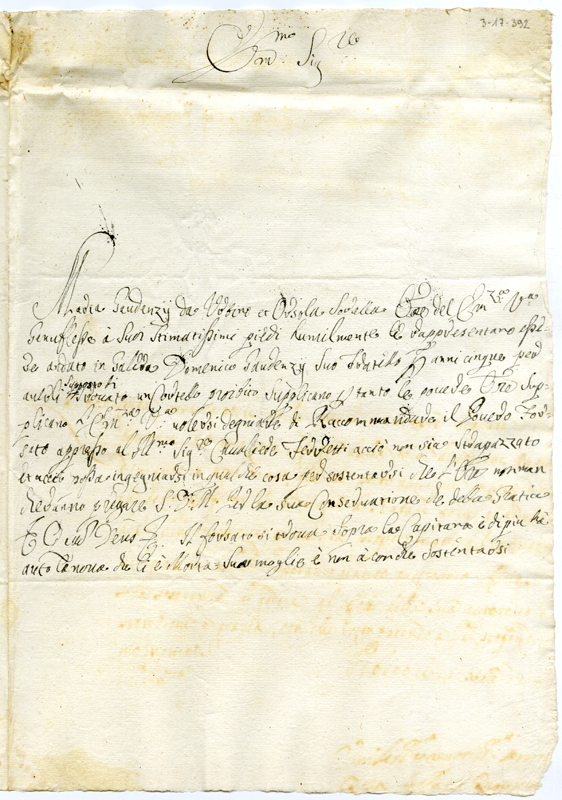 3-17-392
Em:mo Sig:re
Maria Gaudenzij da Urbino et Orsola Sorella Ore del Em:za V:a
Genuflesse à Suoi Stimatissimi piedi humilmente le rappresentano esser
andato in Galera Domenico Gaudenzij Suo fratello p anni cinque per
averli supposto ritrovato un Cortello proibito Supplicano p tanto le povere Ore Sup-
plicano l'Em:za V:a volersi degniare di Raccommandare il povero For-
zato appresso al Ill:mo Sig:re Cavaliere Ferretti acciò non sia strapazzato
et acciò possa ingegniarsi in qualche cosa per sostentarsi che l'Ore non man
cheranno pregare S. D. M. per la Sua Conservatione che della Gratia
Deus Il forzato si trova Sopra la Capitana e di più hà
auto la nova che li è Morta Sua moglie e non à con che Sostentarsi